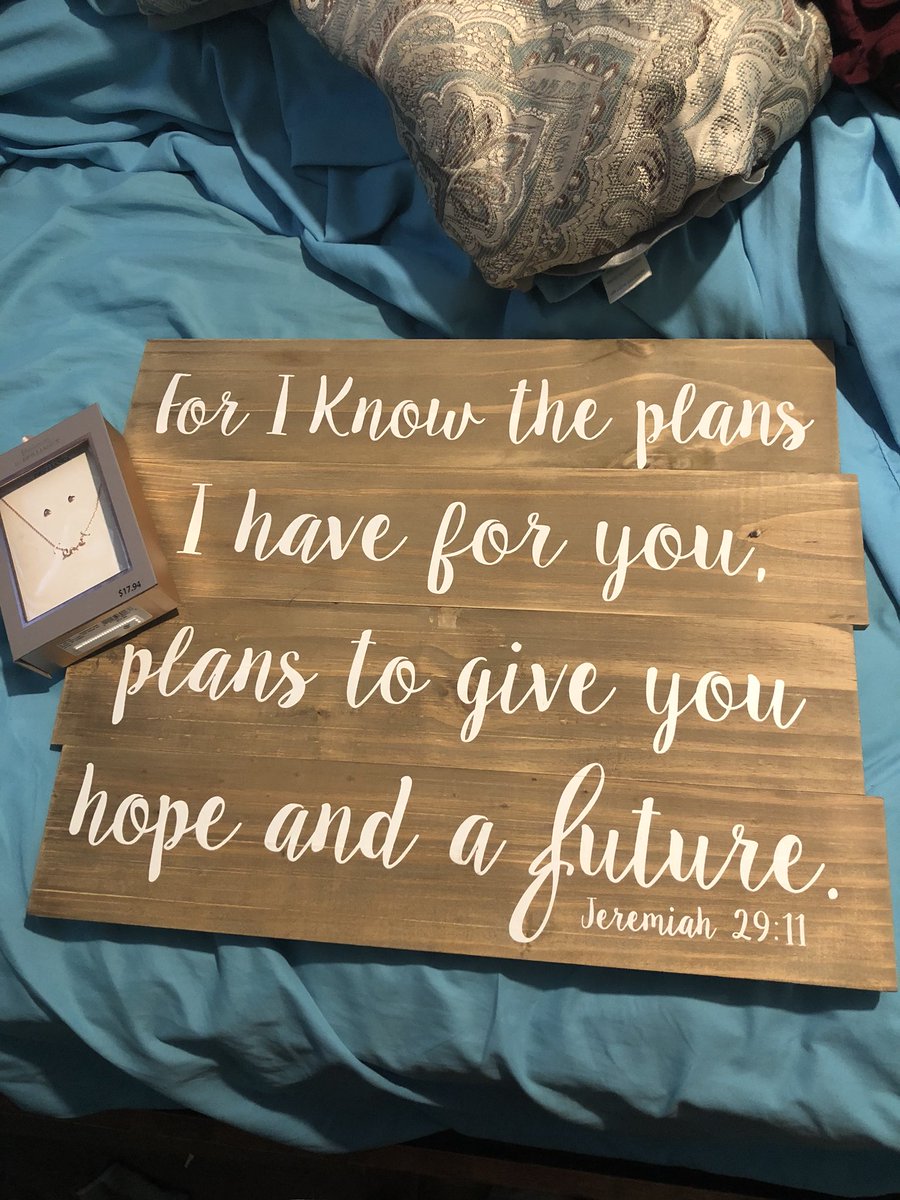 For I Know the plans
I have for you,
plans to give you
hope and a future.
Jeremiah 29:11
$17.94